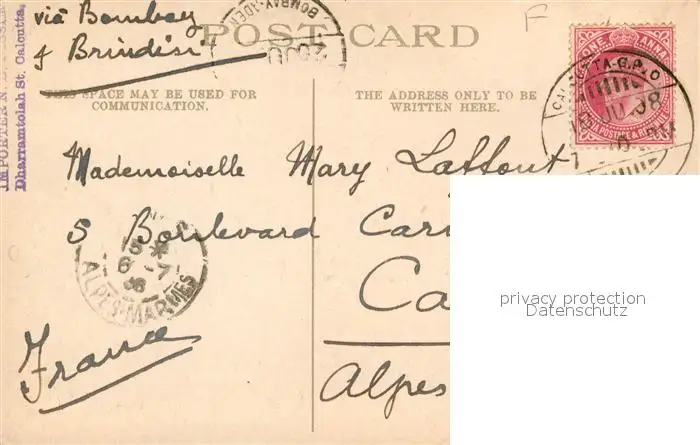 via Bombay
& Brindisi"
POST CARD
THIS SPACE MAY BE USED FOR
COMMUNICATION.
THE ADDRESS ONLY TO BE
WRITTEN HERE.
Dharramtolah St. Calcutta,
IMPORTER N.
BOMBAY-ADEN
F
ONE ANNA
INDIA POSTAGE & REVENUE
CALCUTTA-G.P.O
JU 08
Mademoiselle Mary Lattout
5 Boulevard Car
Ca
Alpes
France
6 -7
08
ALPES-MARMES
privacy protection
Datenschutz